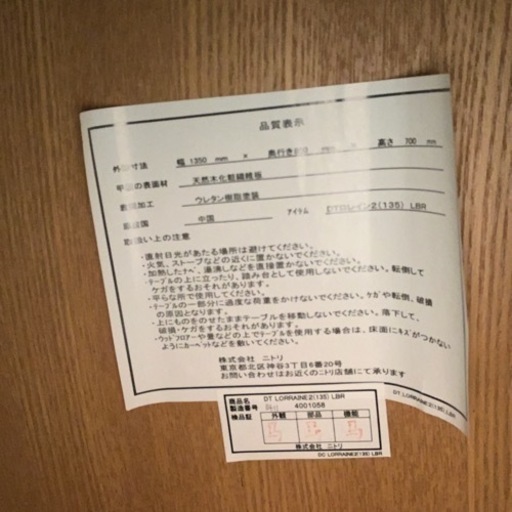 品質表示
外形寸法 幅 1350 mm × 奥行き mm × 高さ 700 mm
甲板の表面材 天然木化粧繊維板
表面加工 ウレタン樹脂塗装
原産国 中国 アイテム DTロレイン2(135) LBR
取扱い上の注意
・直射日光があたる場所は避けてください。
・火気、ストーブなどの近くに置かないでください。
・加熱したナベ、湯沸しなどを直接置かないでください。
・テーブルの上に立ったり、踏み台として使用しないでください。転倒して
ケガをするおそれがあります。
・平らな所で使用してください。
・テーブルの一部分に過度な荷重をかけないでください。ケガや転倒、破損
の原因となります。
・上にものをのせたままテーブルを移動しないでください。落下して、
破損・ケガをするおそれがあります。
・ウッドフロアーや畳などの上でテーブルを使用する場合は、床面にキズがつかない
ようにカーペットなどを敷いてください。
株式会社 ニトリ
東京都北区神谷3丁目6番20号
お問い合わせはお近くのニトリ店舗にて承ります
DT LORRAINE2(135) LBR
商品名 DT LORRAINE2(135) LBR
製造番号 4001058
検品証 外観 部品 機能
株式会社 ニトリ
DC LORRAINE2(135) LBR